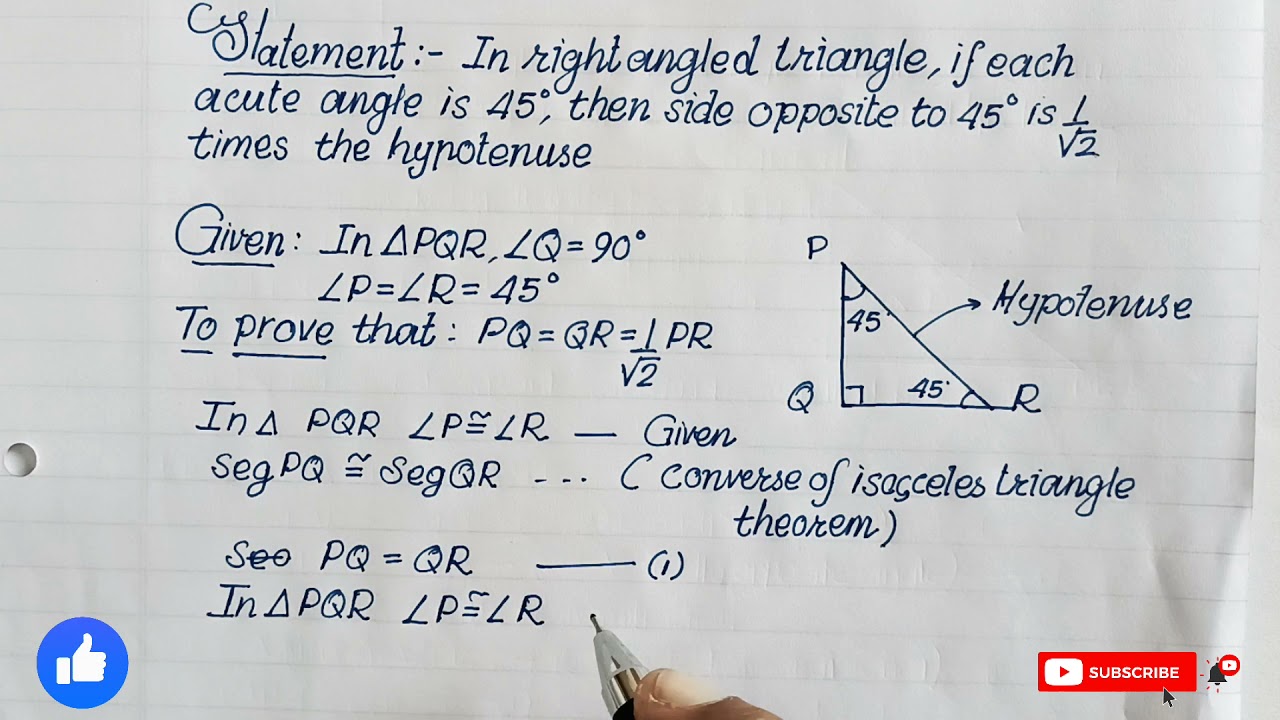 Statement:- In right angled triangle, if each
acute angle is 45°, then side opposite to 45° is 1/√2
times the hypotenuse
Given: In △PQR, ∠Q = 90°
∠P = ∠R = 45°
To prove that: PQ = QR = 1/√2 PR
P
45°
Hypotenuse
Q
45°
R
In △ PQR ∠P ≅ ∠R — Given
seg PQ ≅ seg QR --- (converse of isosceles triangle
theorem)
PQ = QR —— (1)
In △PQR ∠P ≅ ∠R
SUBSCRIBE